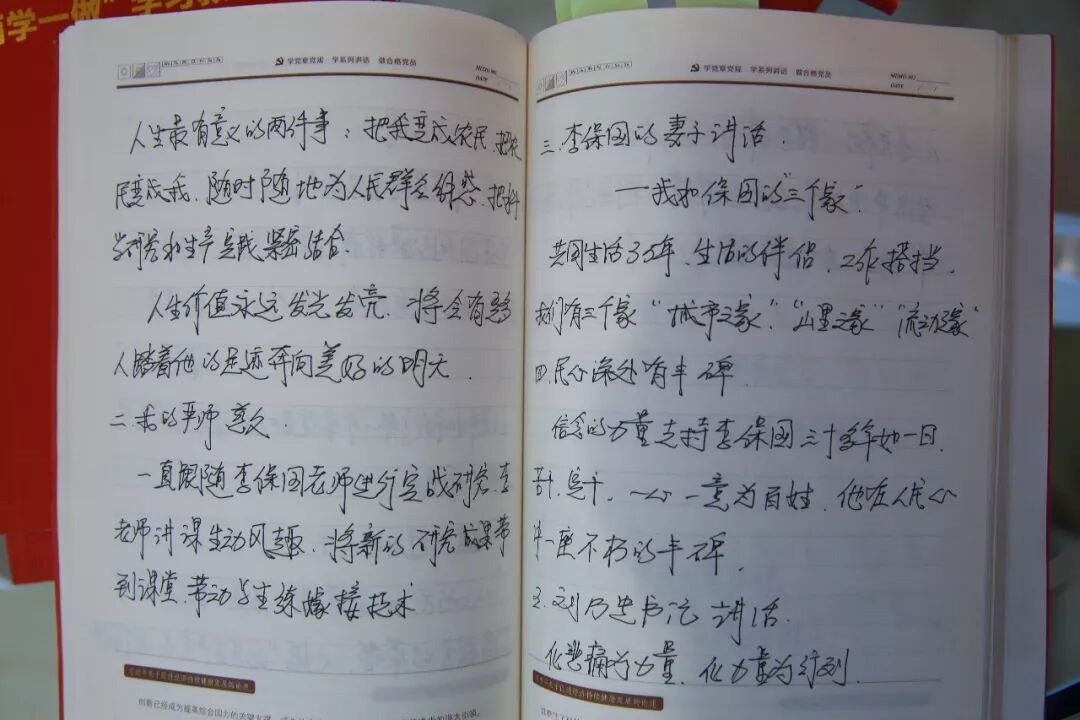 学一做" 学习
学党章党规 学系列讲话 做合格党员
MEMO NO.
DATE / /
人生最有意义的两件事：把我变成农民、把农
民变成我、随时随地为人民群众、把科
学研究和生产实践紧密结合.
人生价值永远发光发亮、将会有
人踏着他的足迹奔向美好的明天.
二.我的严师慈父
一直跟随李保国老师进行实战研究.李
老师讲课生动风趣、将新的研究成果带
到课堂、带动学生练嫁接技术
创新已经成为提高综合国力的关键支撑
学党章党规 学系列讲话 做合格党员
MEMO NO.
DATE / /
三.李保国的妻子讲话.
——我和保国的"三个家"
共同生活35年、生活的伴侣、工作搭挡、
我们有三个家"城市之家"."山里之家""流动之家"
四.民心深处有丰碑
信念的力量支持李保国三十多年如一日.
苦干.实干、一心一意为百姓、他在人民心
中一座不朽的丰碑.
五.书记讲话.
化悲痛为力量、化力量为行动.